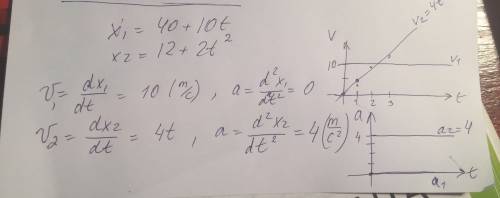 x₁ = 40 + 10t
x₂ = 12 + 2t²
v₁ = dx₁/dt = 10 (m/c), a = d²x₁/dt² = 0
v₂ = dx₂/dt = 4t, a = d²x₂/dt² = 4 (m/c²)
V
v₂ = 4t
10
v₁
1 2 3
t
a
4
a₂ = 4
a₁
t